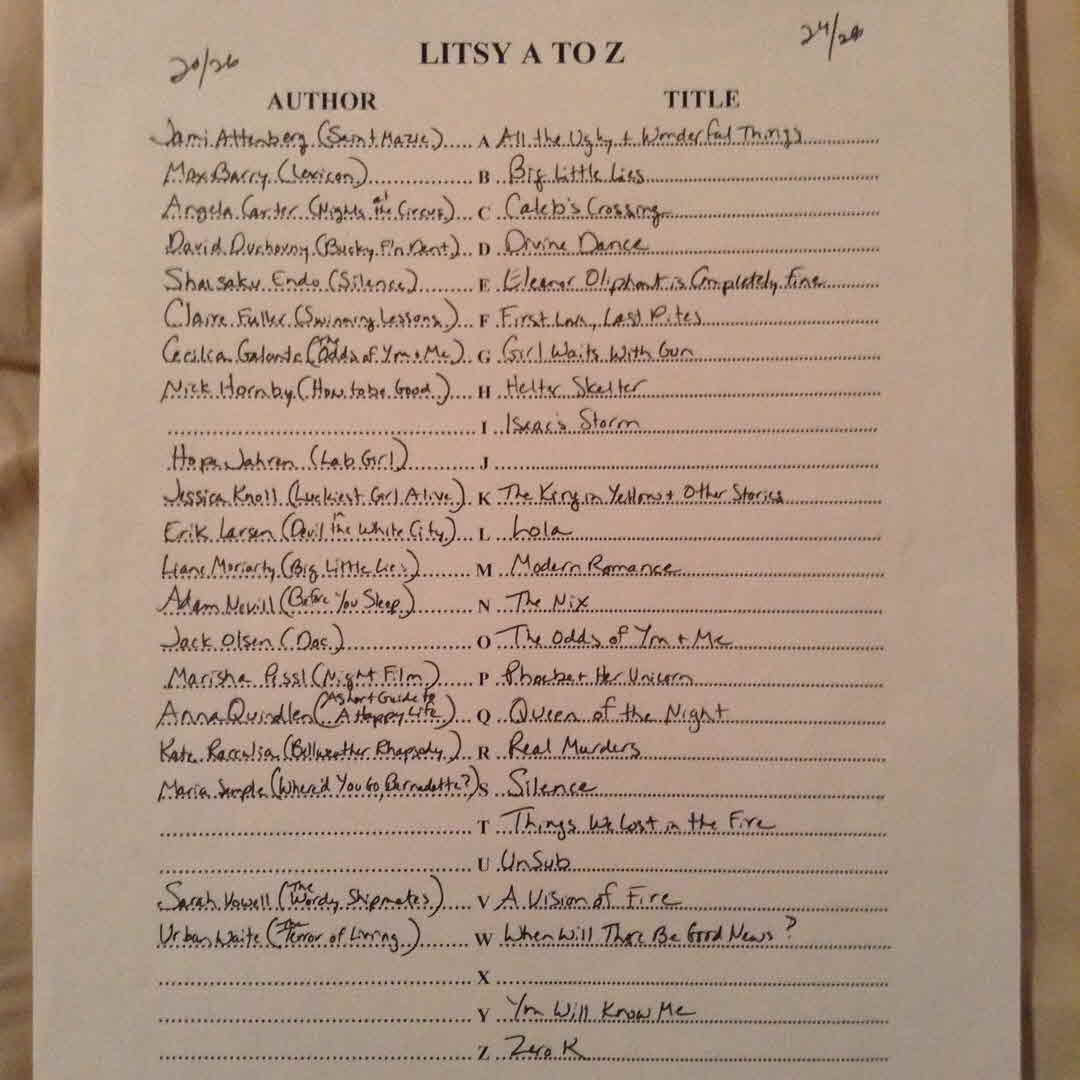 20/26 24/26
LITSY A TO Z
AUTHOR TITLE
Jami Attenberg (Saint Mazie) A All the Ugly + Wonderful Things
Max Barry (Lexicon) B Big Little Lies
Angela Carter (Nights at the Circus) C Caleb's Crossing
David Duchovny (Bucky F'n Dent) D Divine Dance
Shusaku Endo (Silence) E Eleanor Oliphant is Completely Fine
Claire Fuller (Swimming Lessons) F First Love, Last Rites
Cecilia Galante (The Odds of You + Me) G Girl Waits With Gun
Nick Hornby (How to be Good) H Helter Skelter
I Isaac's Storm
Hope Jahren (Lab Girl) J
Jessica Knoll (Luckiest Girl Alive) K The King in Yellow + Other Stories
Erik Larson (Devil in The White City) L Lola
Liane Moriarty (Big Little Lies) M Modern Romance
Adam Nevill (Before You Sleep) N The Nix
Jack Olsen (Doc) O The Odds of You + Me
Marisha Pessl (Night Film) P Phoebe + Her Unicorn
Anna Quindlen (A Short Guide to A Happy Life) Q Queen of the Night
Kate Racculia (Bellweather Rhapsody) R Real Murders
Maria Semple (Where'd You Go, Bernadette?) S Silence
T Things We Lost in the Fire
U UnSub
Sarah Vowell (The Wordy Shipmates) V A Vision of Fire
Urban Waite (The Terror of Living) W When Will There Be Good News?
X
Y You Will Know Me
Z Zero K